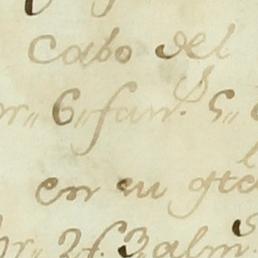 Cabo del
6,, fan.s 5,,
en su gto
2 f. 3 alm.s